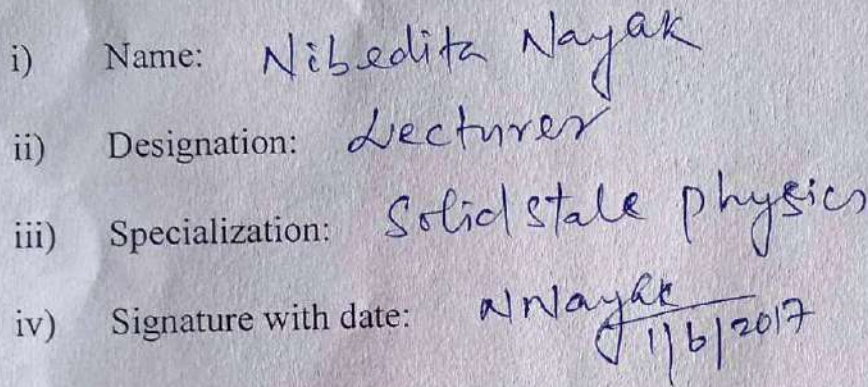 i) Name: Nibedita Nayak
ii) Designation: Lecturer
iii) Specialization: Solid state physics
iv) Signature with date: NNayak
1/6/2017